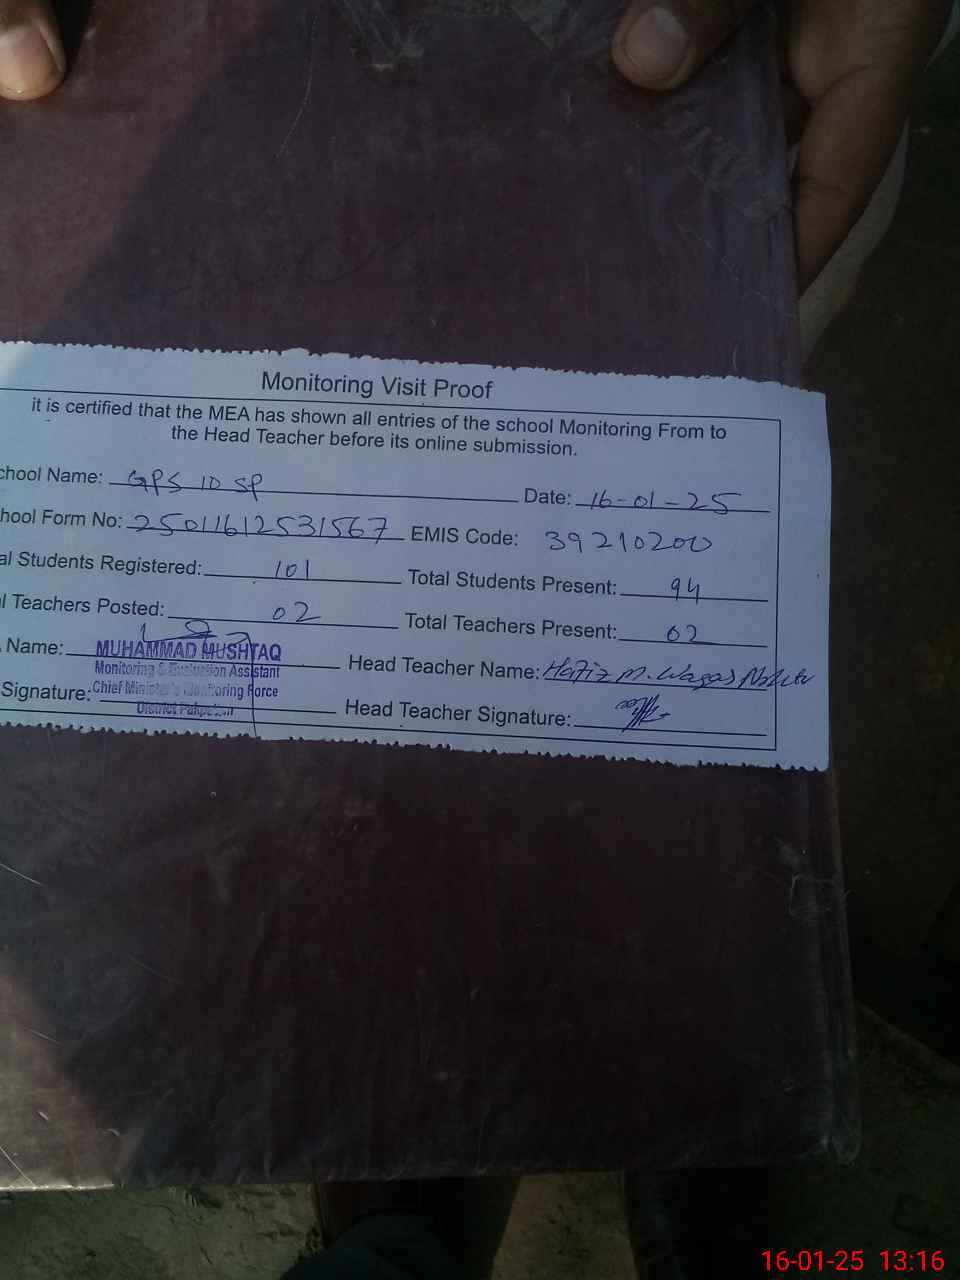 Monitoring Visit Proof
it is certified that the MEA has shown all entries of the school Monitoring From to
the Head Teacher before its online submission.
chool Name: GPS 10 SP Date: 16-01-25
hool Form No: 25011612531567 EMIS Code: 39210200
al Students Registered: 101 Total Students Present: 94
l Teachers Posted: 02 Total Teachers Present: 02
Name: MUHAMMAD MUSHTAQ Head Teacher Name: Hafiz M. Waqas
Monitoring & Evaluation Assistant
Signature: Chief Minister's Monitoring Force Head Teacher Signature:
District Pakpattan
16-01-25 13:16